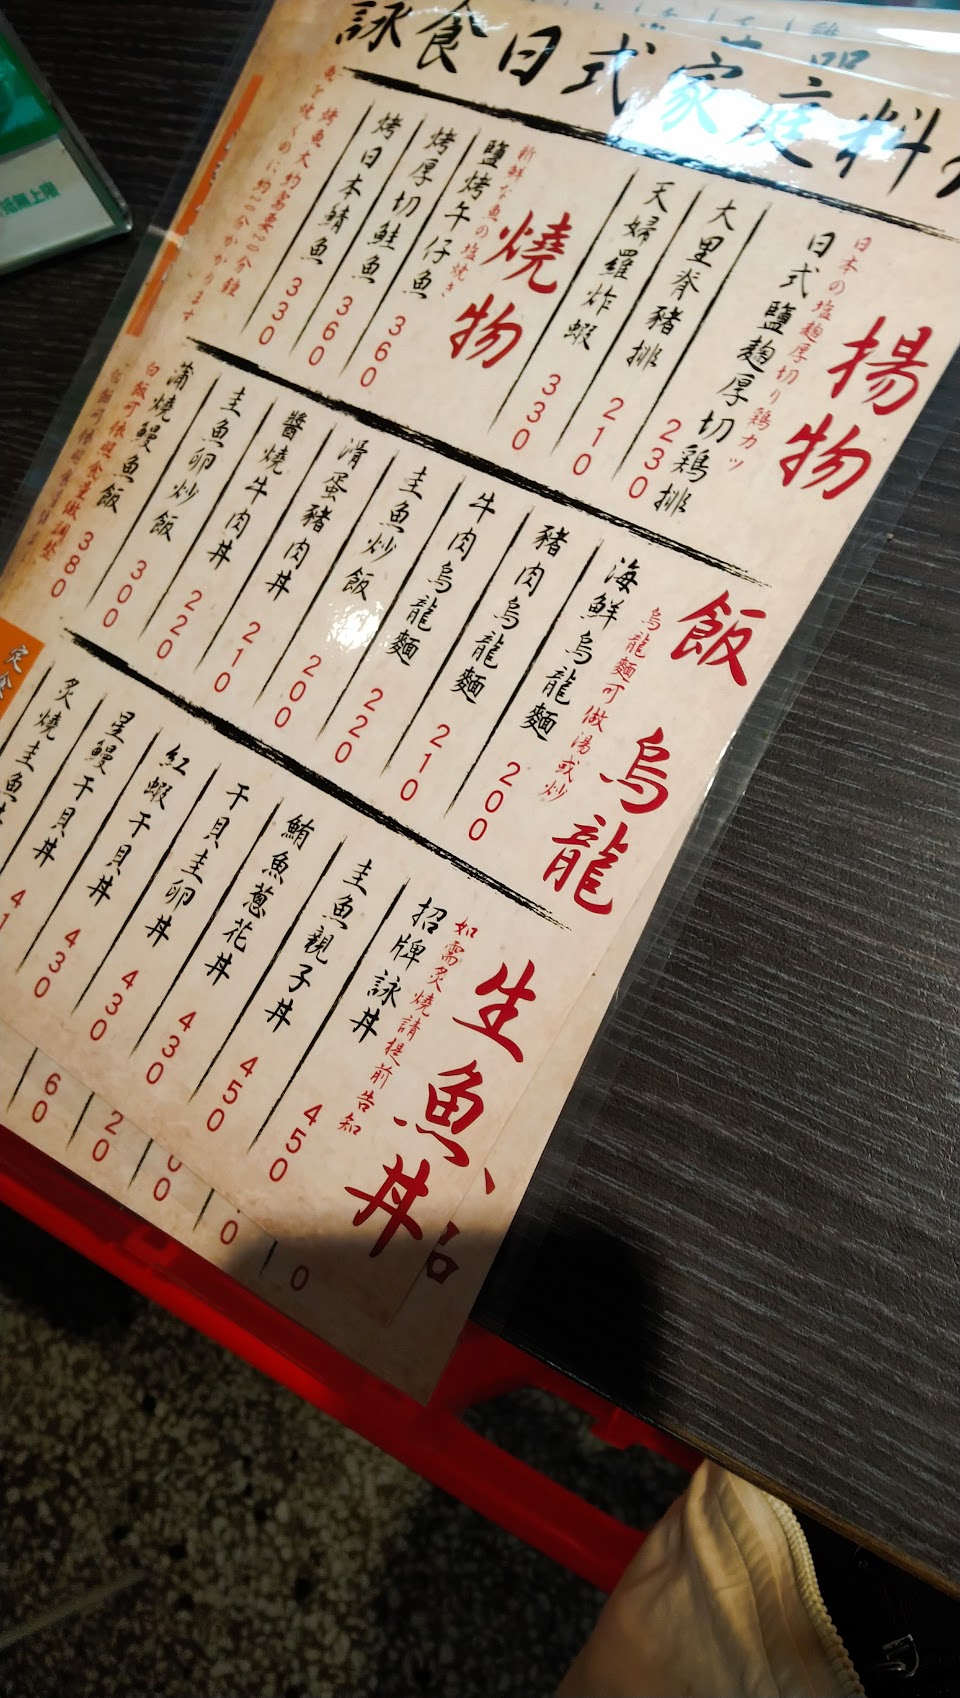 詠食日式家庭料
揚物
日本の塩麹厚切り鶏カツ
日式鹽麴厚切鶏排 230
大里脊豬排 210
天婦羅炸蝦 330
燒物
新鮮な魚の塩焼き
鹽烤午仔魚 360
烤厚切鮭魚 360
烤日本鯖魚 330
烤魚大約需要20分鐘
魚を焼くのに約20分かかります
飯
烏龍
烏龍麵可做湯或炒
海鮮烏龍麵 200
豬肉烏龍麵 210
牛肉烏龍麵 220
圭魚炒飯 200
滑蛋豬肉丼 210
醬燒牛肉丼 220
圭魚卵炒飯 300
蒲燒鰻魚飯 380
白飯可依照食量做調整
生魚丼
如需炙燒請提前告知
招牌詠丼 450
圭魚親子丼 450
鮪魚蔥花丼 430
干貝圭卵丼 430
紅蝦干貝丼 430
星鰻干貝丼
炙燒圭魚
定食
60
20